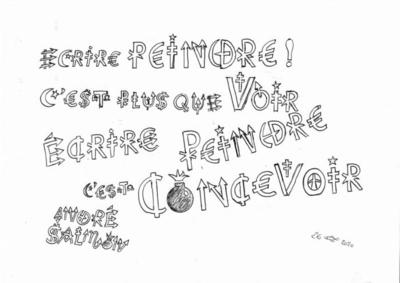 ÉCRIRE PEINDRE !
C'EST PLUS QUE VOIR
ÉCRIRE PEINDRE
C'EST CONCEVOIR
ANDRÉ
SALMON